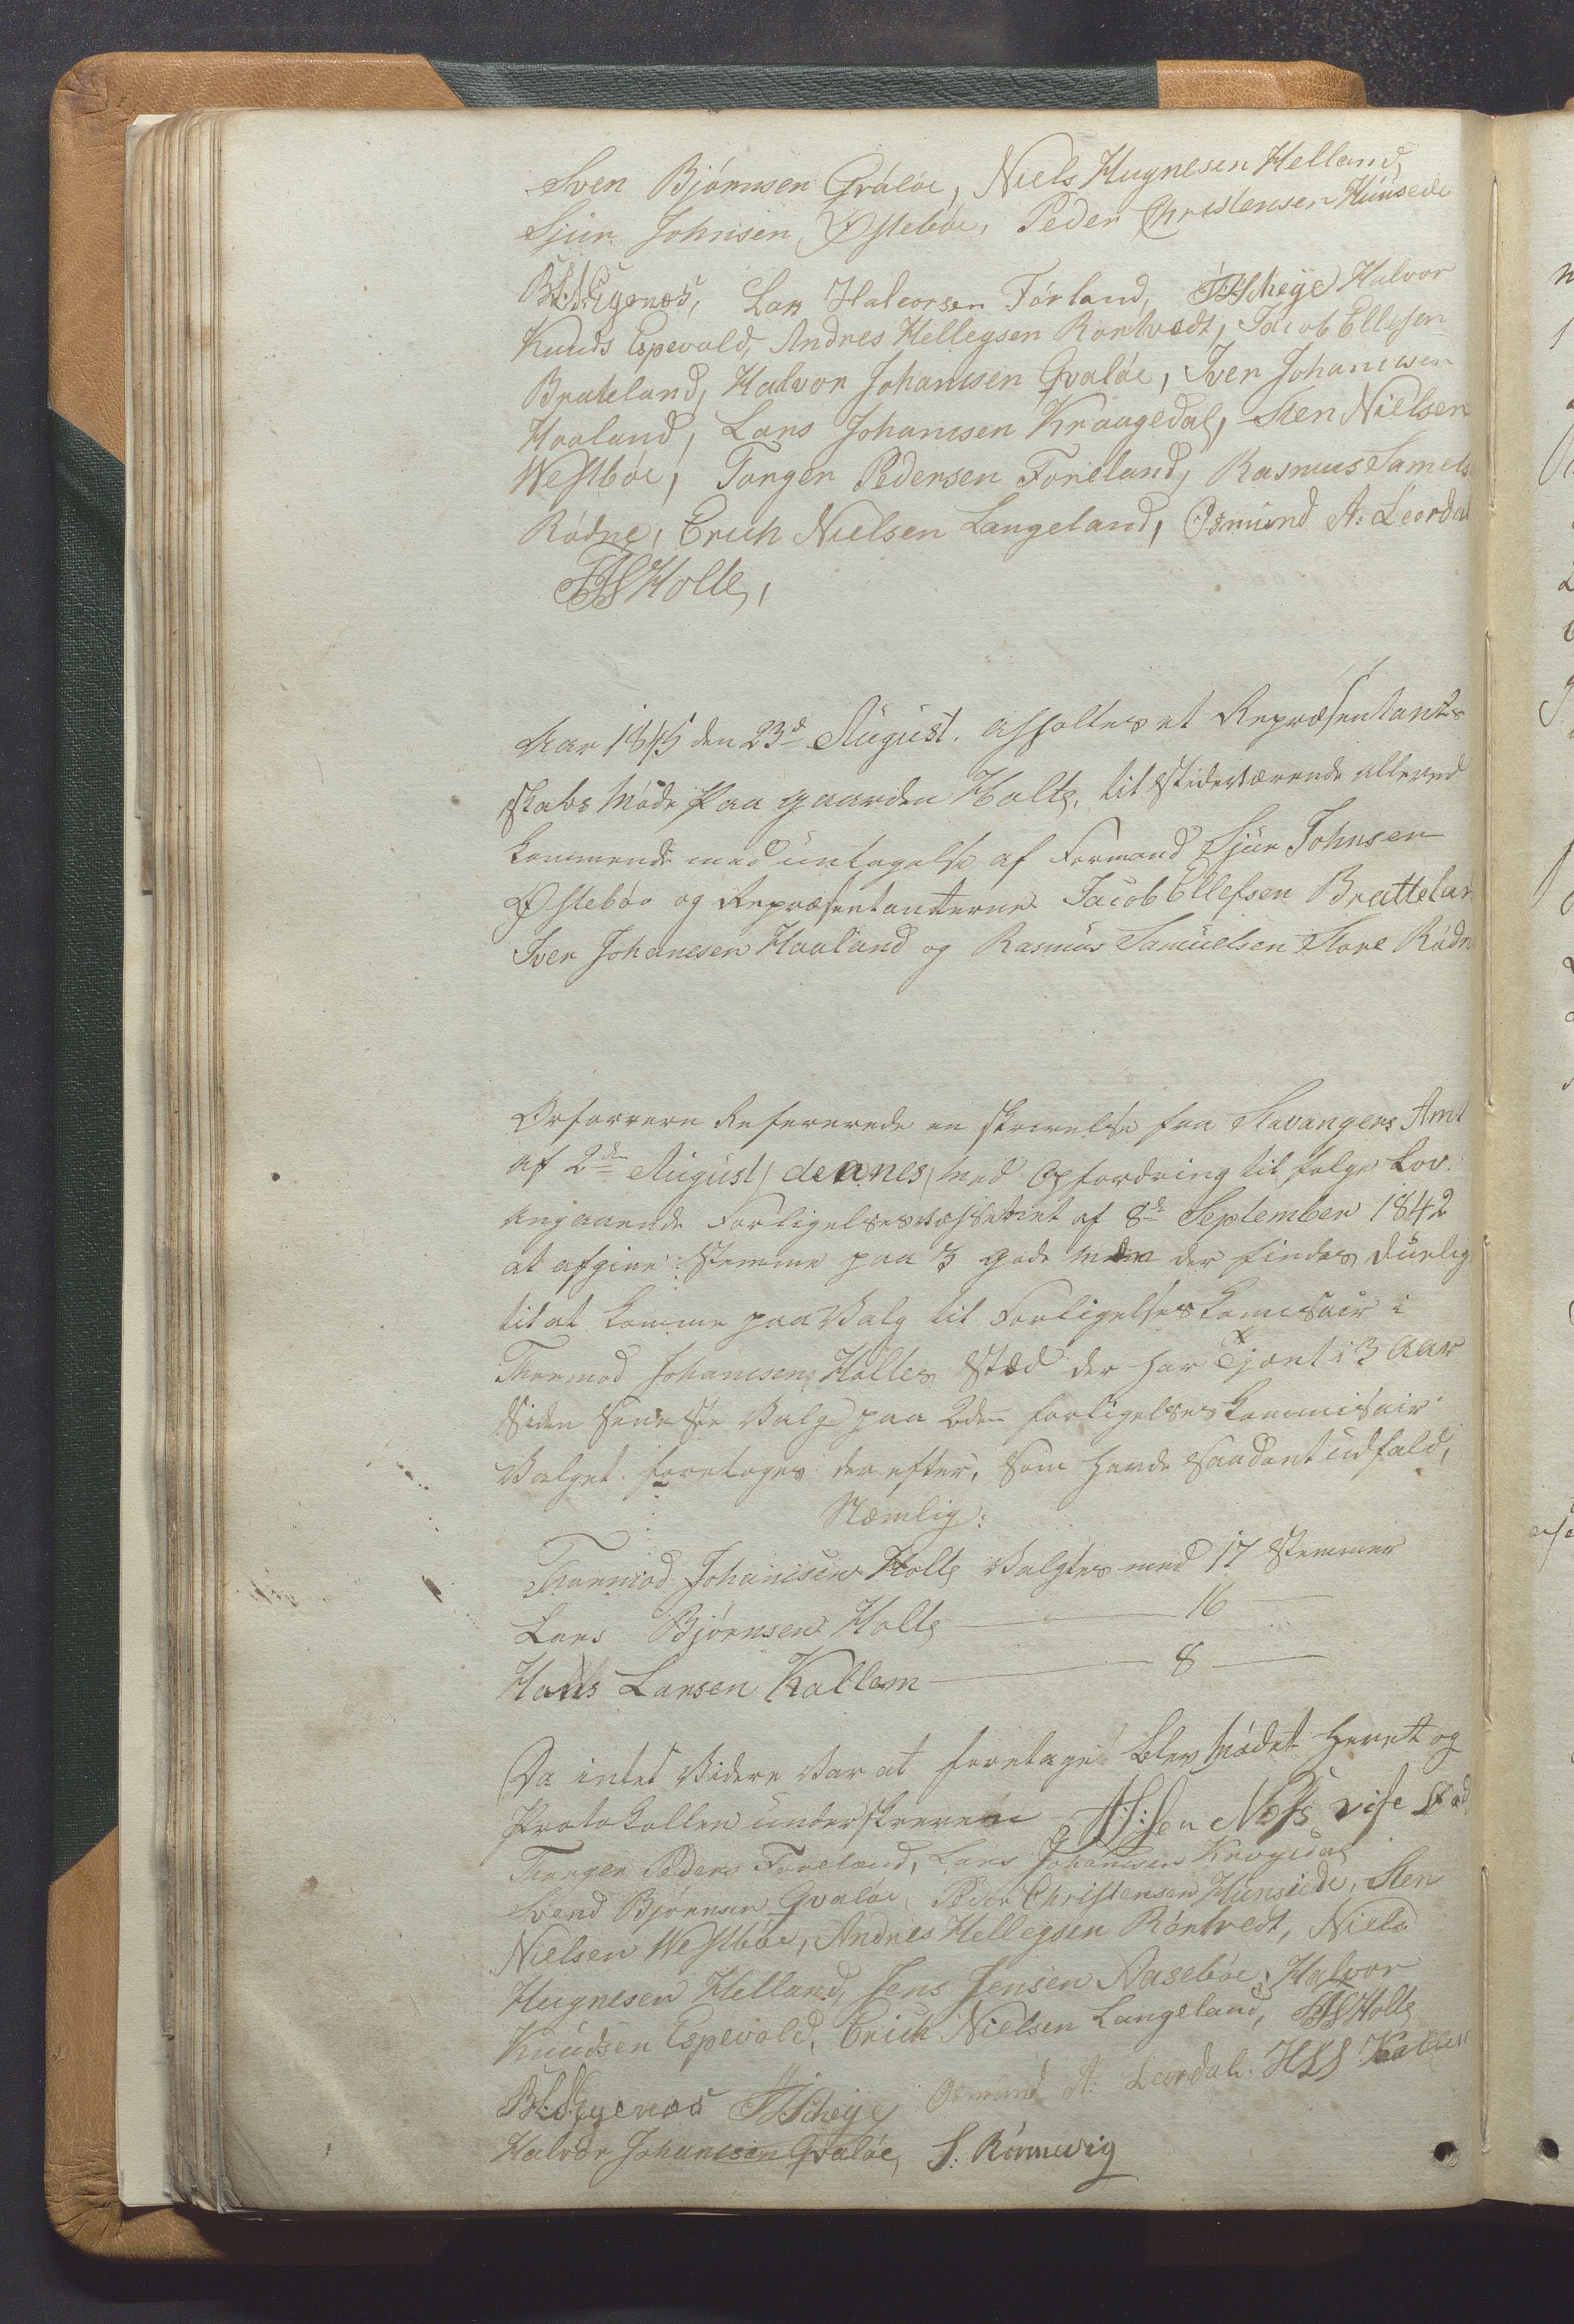 Sven Bjórnsen Qválóe, Niels Hugnesen Helland,
Sjur Johnsen Østebóe, Peder Christensen Húnsede
B: L: Sygenæs, Lars Halvorsen Fórland, Scheye Halvor
Knuds Espevold, Andres Hellegsen Rórtvedt, Jacob Ellefsen
Brateland, Halvor Johannsen Qvalóe, Iver Johanesen
Haaland, Lars Johannsen Kraagedal, Sten Nielsen
Westbóe, Torger Pedersen Foreland, Rasmus Samels
Ródne, Erich Nielsen Langeland, Osmund A: Leerdal
Holte,
Aar 1845 den 23d August. afholtes et Repræsentant-
skabs Móde paa gaarden Holte, tilstedeværende allevedk
kommende med úntagelse af Formand Sjur Johnsen
Østebóe og Repræsentanterne Jacob Ellefsen Brattelan
Iver Johanesen Haaland og Rasmus Samúelsen Store Ródn
Orførern Refererede en skrivelse fra Stavangers Amt
af 2den August, deanes, med Opfordring til følge Lov.
angaaende Forligelsesvæsenet af 8de September 1842
at afgive Stemme paa 3 gode mæn der findes duelig
til at komme paa Valg til Forligelses Komisair i
Thormod Johansens Holtes Stæd der har Tjænt i 3 Aar
siden seneste Valg paa 2den forligelses Kommisair
Valget foretoges der efter, som havde saadant udfald,
Næmlig:
Thormod Johannsen Holte Valgtes med 17 Stemmer
Lars Bjórnsen Holte — 16 —
Hans Larsen Kallem — 8 —
Da intet Videre var at foretage blev Mødet hævet og
Protokollen underskreven Næss
Thorger Peders Foreland, Lars Johannsen Krogedal
Svend Bjórnsen Qvalóe, Peder Christensen Hunsede, Sten
Nielsen Westbóe, Andres Hellegsen Rórtvedt, Niels
Hugnesen Helland, Jens Jensen Aasebóe, Halvor
Knúdsen Espevold, Erich Nielsen Langeland, Holte
B: L: Sygenæs Scheye Osmund A: Leerdal. HLS Kallem
Halvor Johannsen Qvalóe, S: Rónnevig